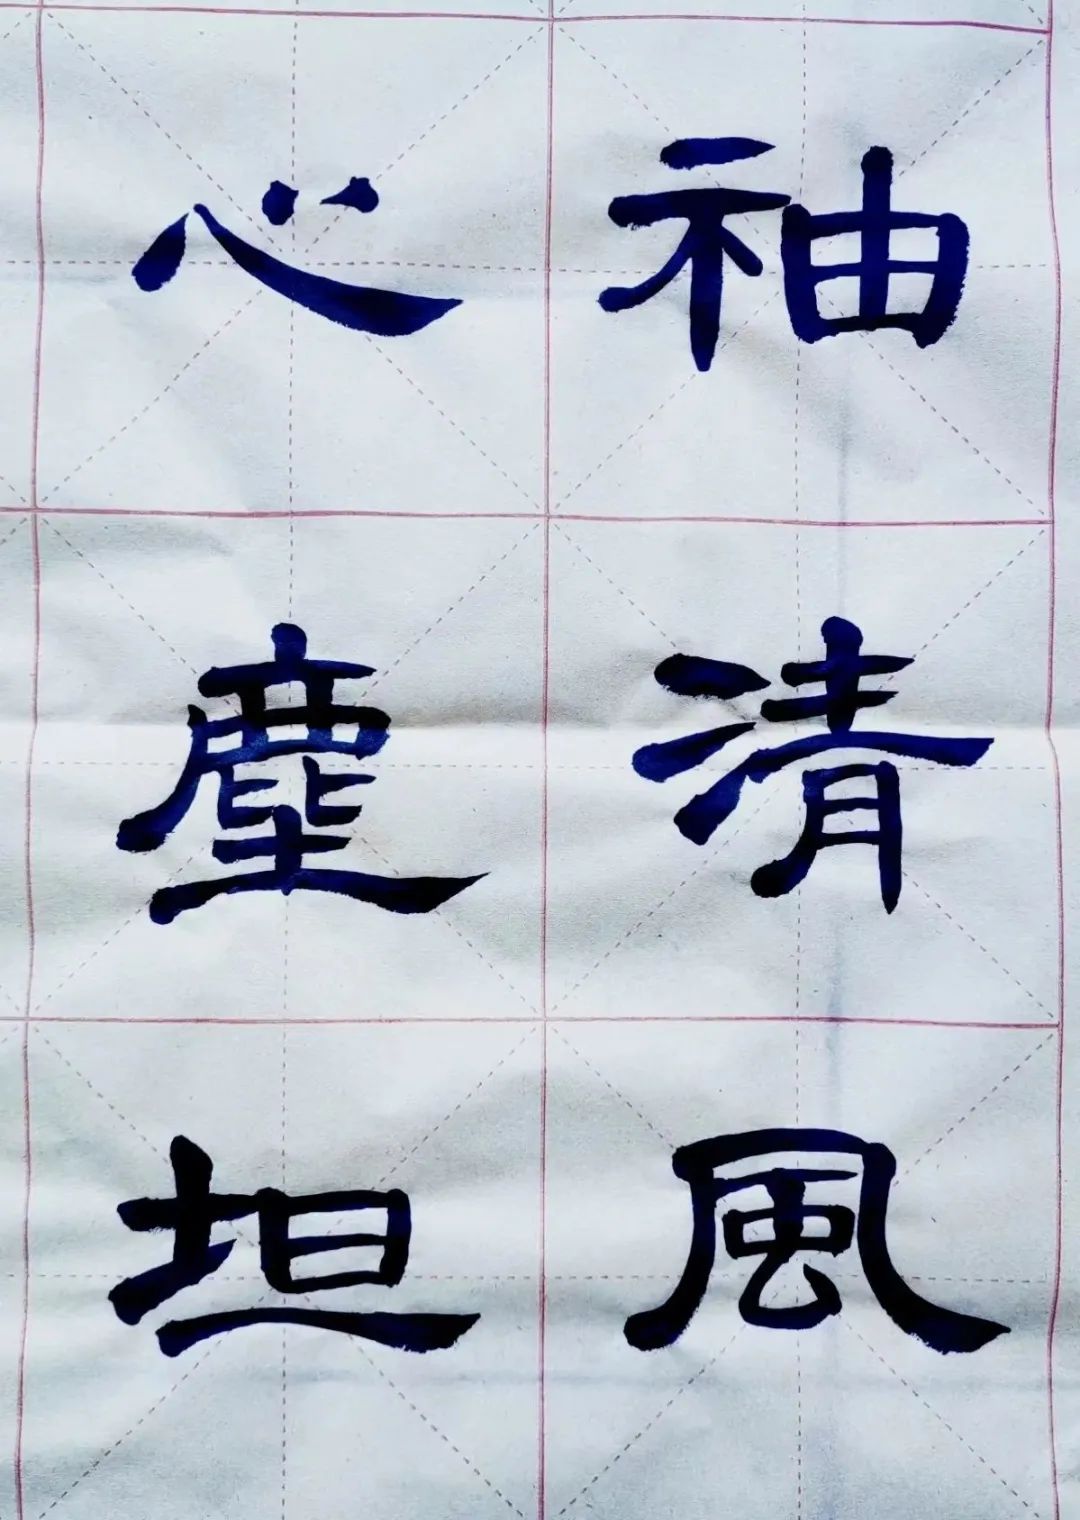 袖清風
心塵坦